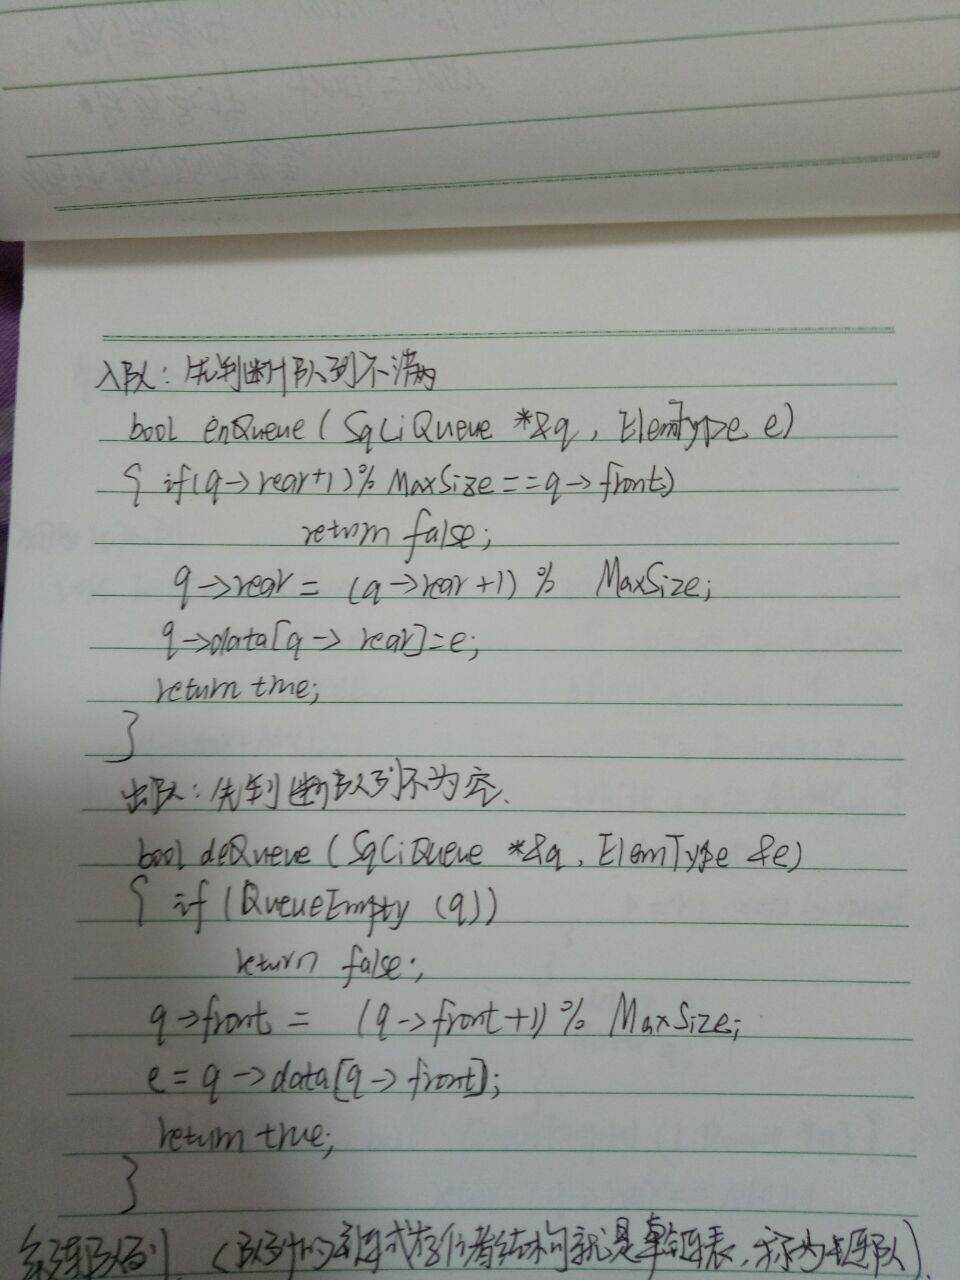 入队：先判断队列不满
bool enQueue(SqCiQueue *&q, ElemType e)
{ if(q->rear+1)% MaxSize==q->front)
return false;
q->rear = (q->rear+1) % MaxSize;
q->data[q-> rear]=e;
return true;
}
出队：先判断队列不为空.
bool deQueue(SqCiQueue *&q, ElemType &e)
{ if(QueueEmpty (q))
return false;
q->front = (q->front+1)% MaxSize;
e = q->data[q-> front];
return true;
}
(队列的链式存储结构就是单链表，称为链队)